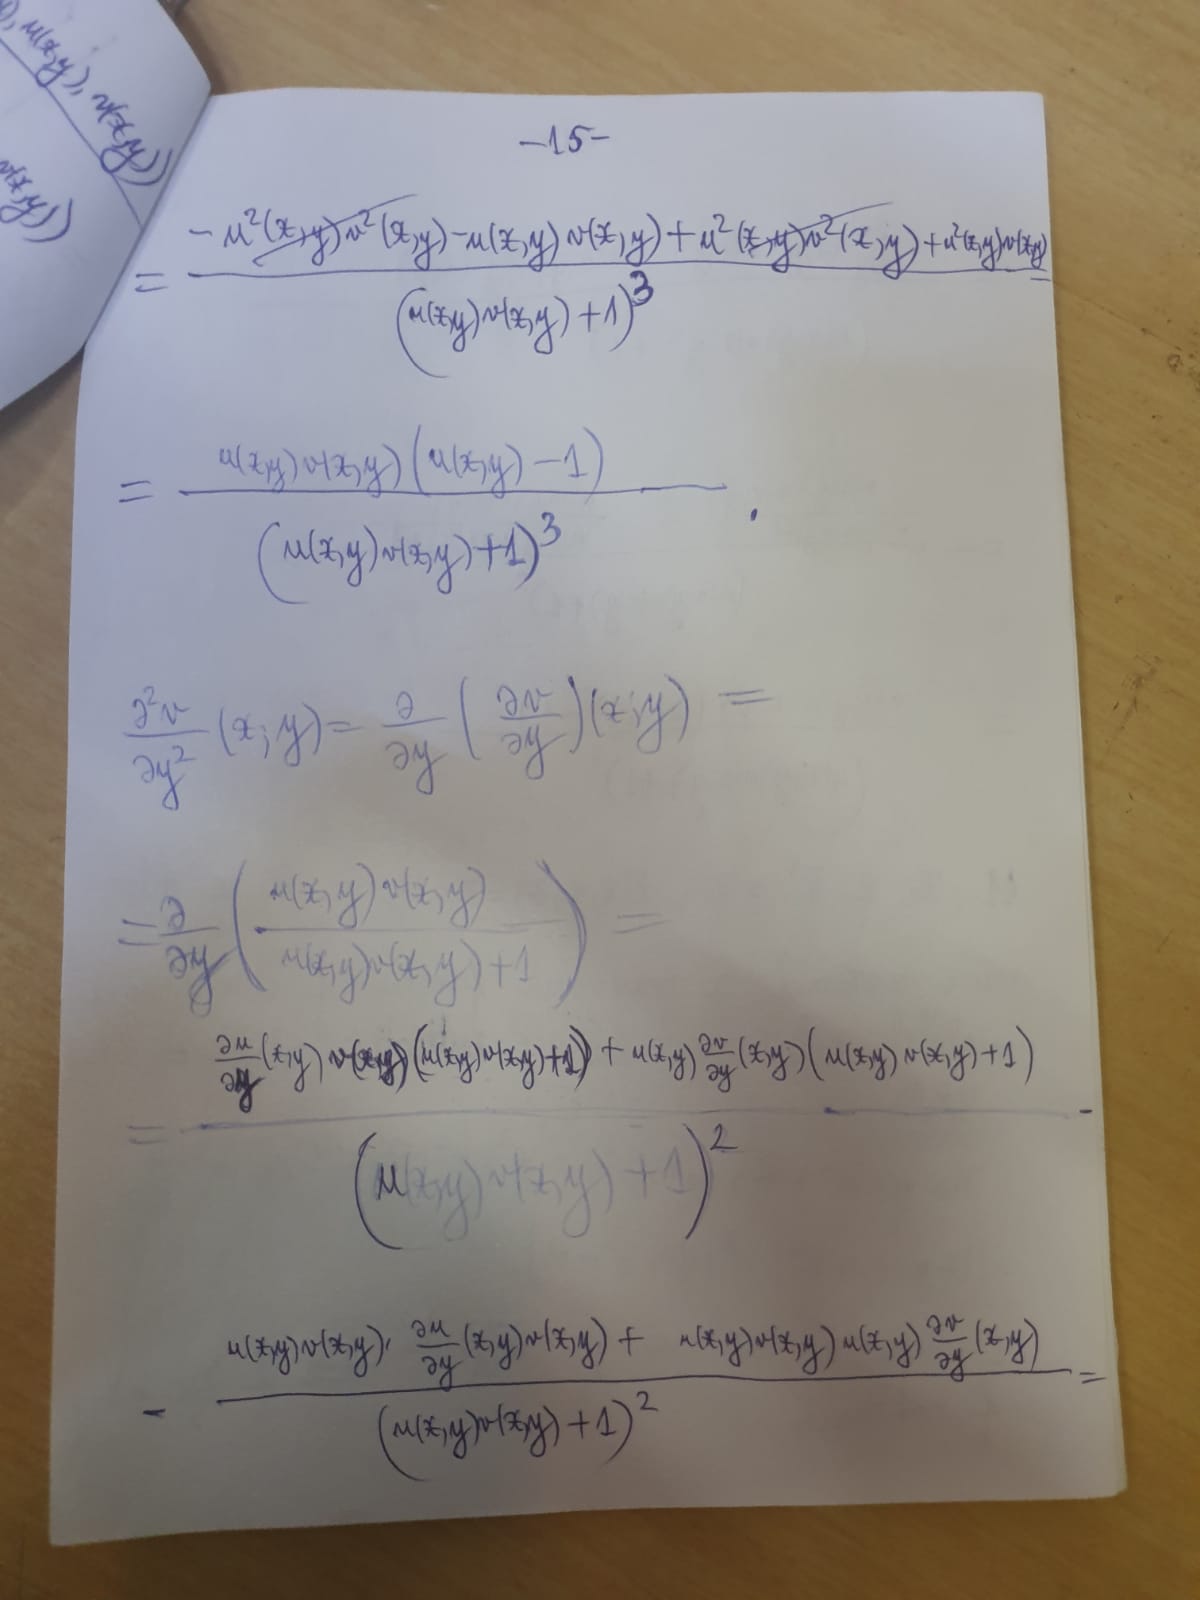 ), u(x,y), v(x,y))
v(x,y))
-15-
= (-u²(x,y)v²(x,y) - u(x,y)v(x,y) + u²(x,y)v²(x,y) + u²(x,y)v(x,y)) / (u(x,y)v(x,y)+1)³ =
= u(x,y)v(x,y)(u(x,y)-1) / (u(x,y)v(x,y)+1)³ .
∂²v/∂y² (x;y) = ∂/∂y (∂v/∂y)(x;y) =
= ∂/∂y (u(x,y)v(x,y) / u(x,y)v(x,y)+1) =
= (∂u/∂y (x,y) v(x,y)(u(x,y)v(x,y)+1) + u(x,y) ∂v/∂y (x,y)(u(x,y)v(x,y)+1)) / (u(x,y)v(x,y)+1)² -
- (u(x,y)v(x,y)· ∂u/∂y (x,y)v(x,y) + u(x,y)v(x,y)u(x,y) ∂v/∂y (x,y)) / (u(x,y)v(x,y)+1)² =